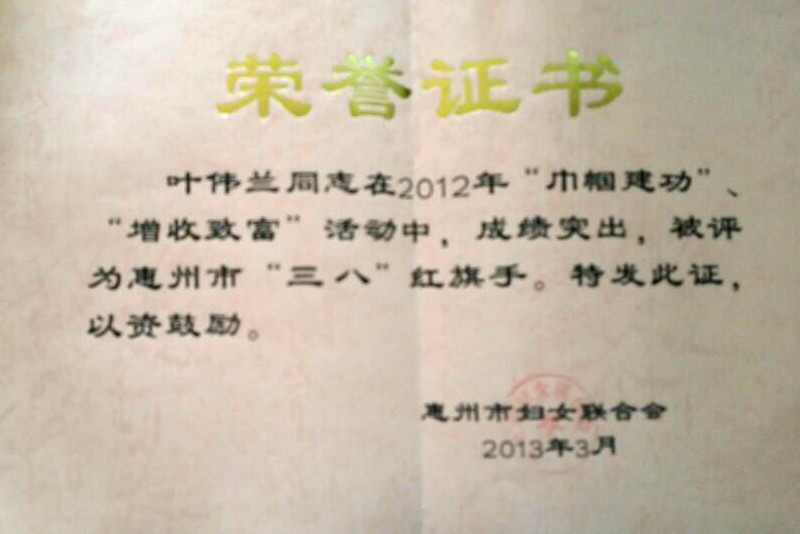 荣誉证书
叶伟兰同志在2012年“巾帼建功”、
“增收致富”活动中，成绩突出，被评
为惠州市“三八”红旗手。特发此证，
以资鼓励。
惠州市妇女联合会
2013年3月